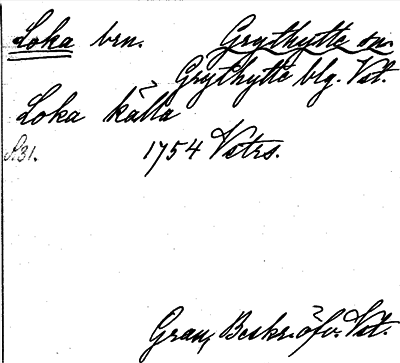 Loka brn. Grythytte sn.
Grythytte blg. Vst.
Loka källa
S.31. 1754 Vstrs.
Grau, Beskr. öfv. Vst.